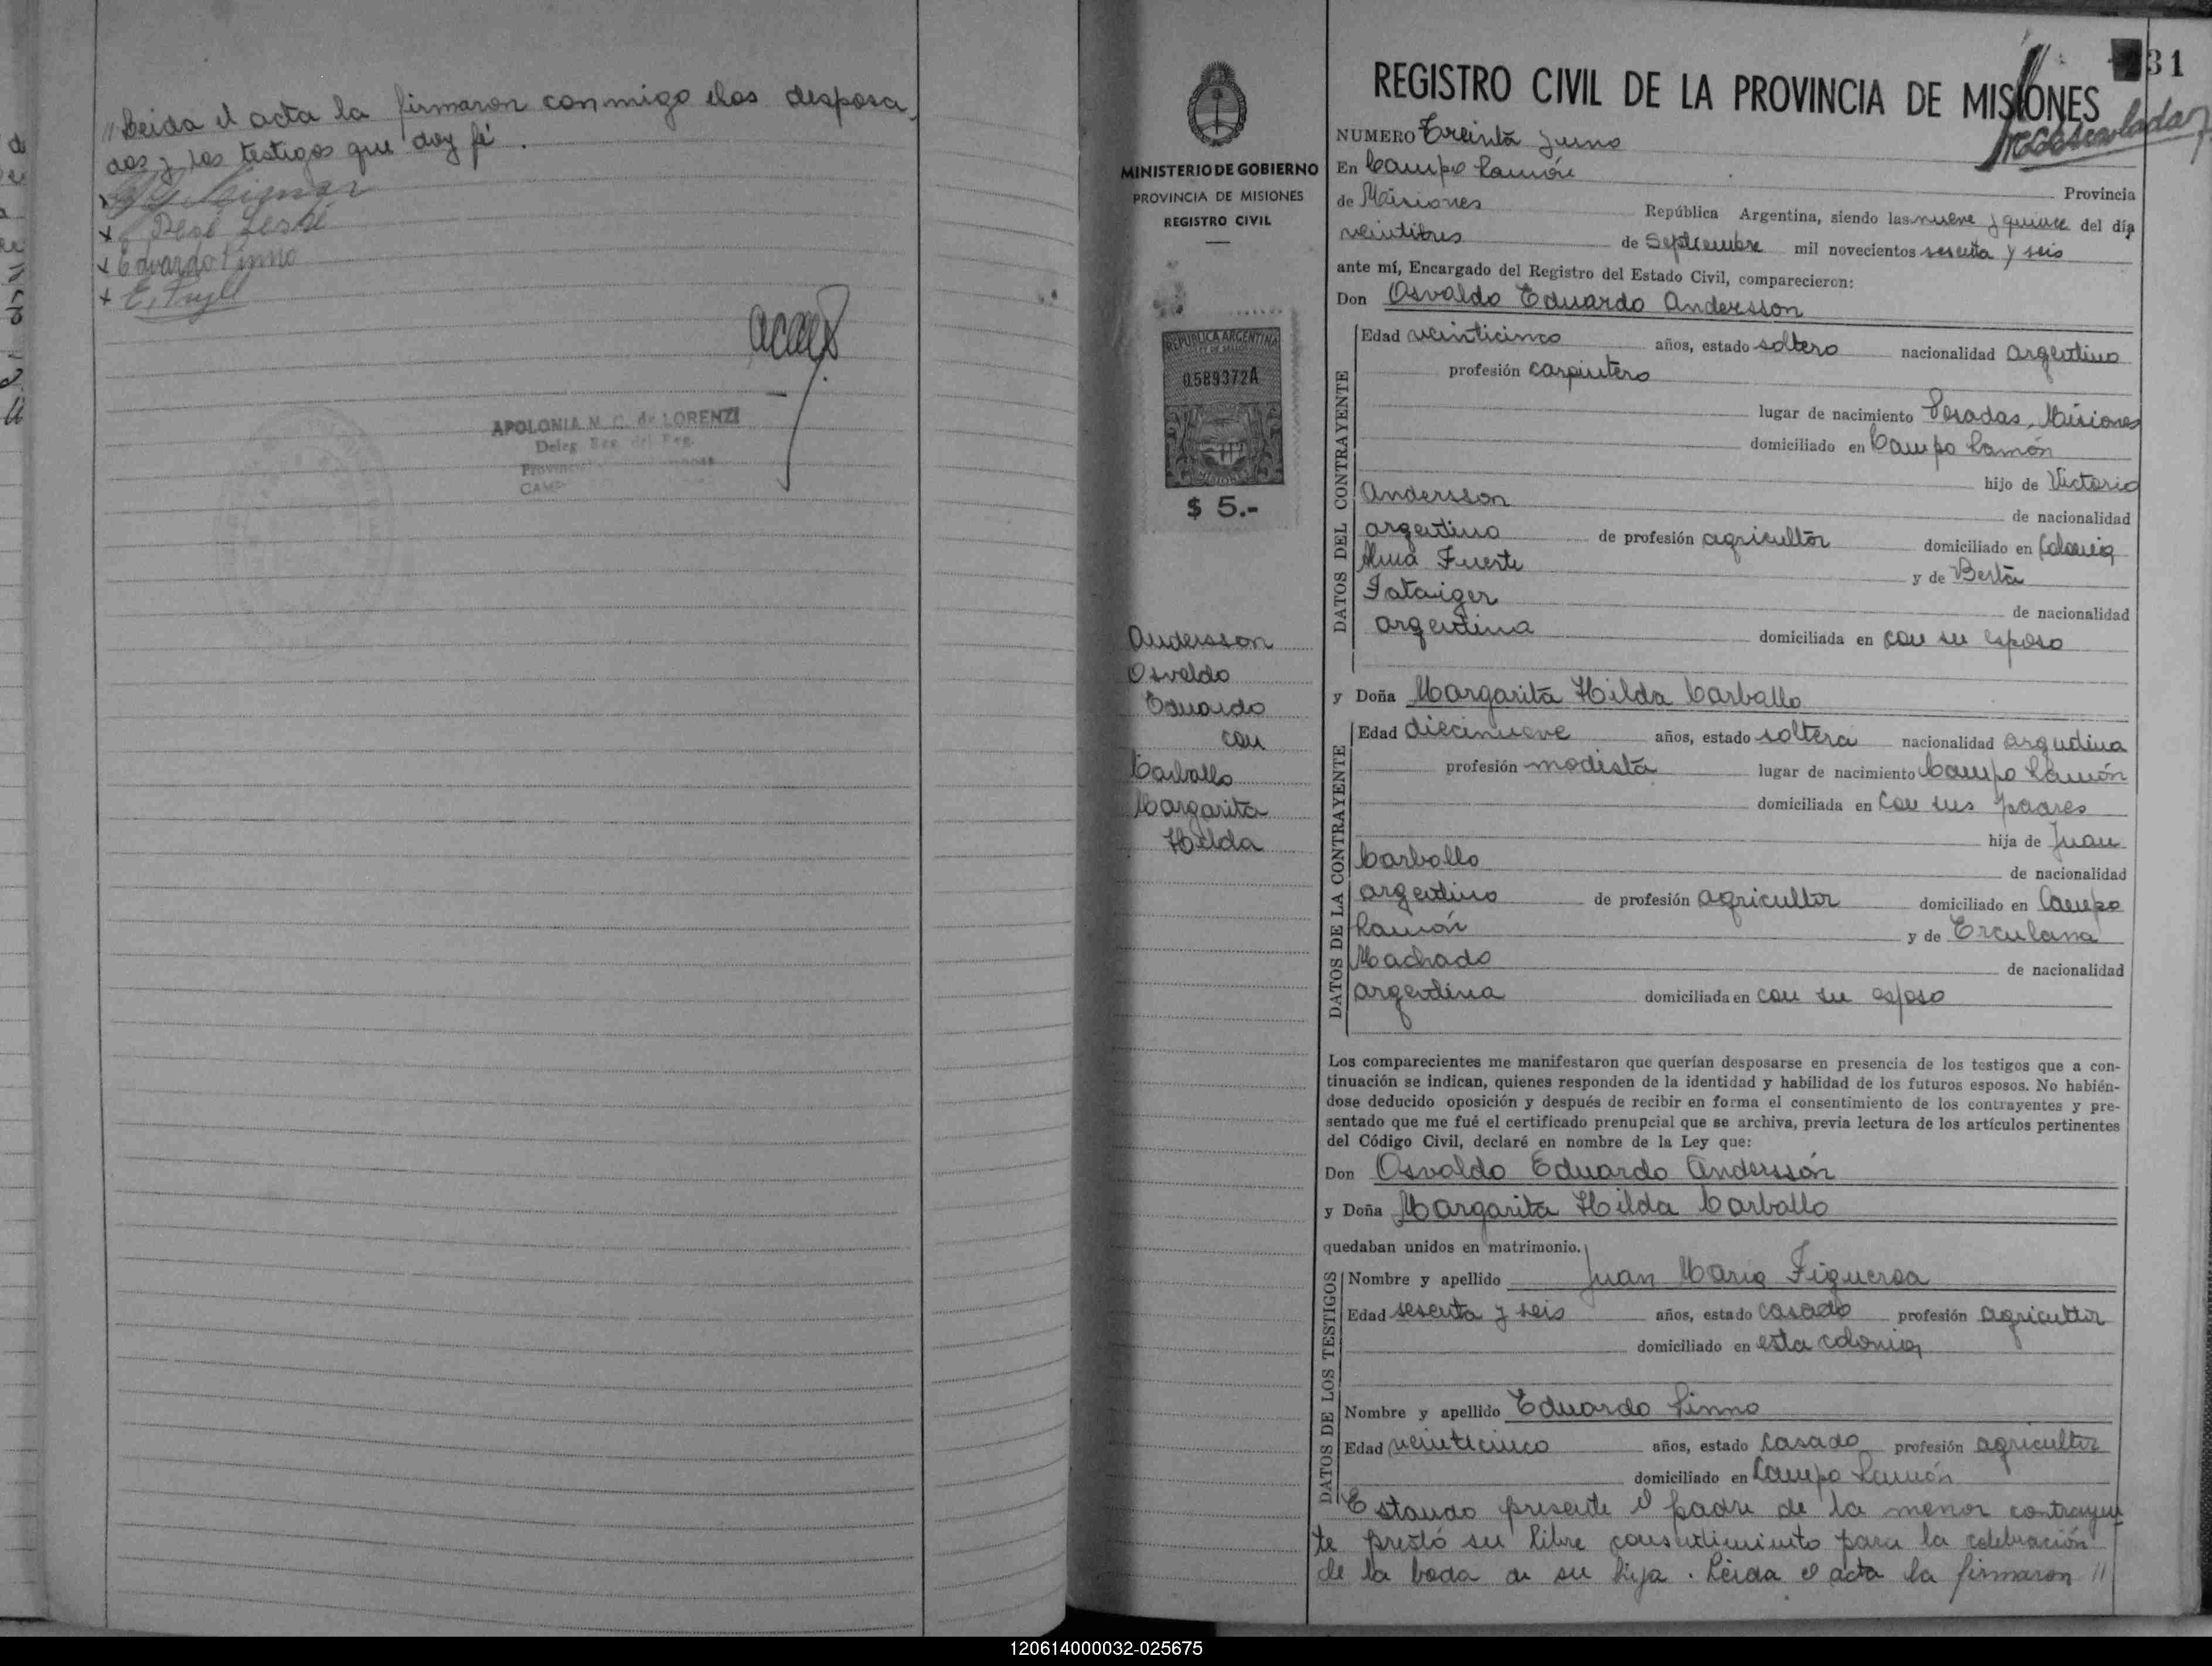 // Leida el acta la firmaron conmigo los desposa
dos y los testigos que doy fé.
Eduardo Linno
APOLONIA M. C. de LORENZI
Deleg. Enc. del Reg.
31
REGISTRO CIVIL DE LA PROVINCIA DE MISIONES
MINISTERIO DE GOBIERNO
PROVINCIA DE MISIONES
REGISTRO CIVIL
REPUBLICA ARGENTINA
0.589372A
$ 5.-
Andersson
Osvaldo
Eduardo
con
Carballo
Margarita
Hilda
NUMERO Treinta y uno
En Campo Ramón Provincia
de Misiones República Argentina, siendo las nueve y quince del día
veintitres de Septiembre mil novecientos sesenta y seis
ante mí, Encargado del Registro del Estado Civil, comparecieron:
Don Osvaldo Eduardo Andersson
DATOS DEL CONTRAYENTE
Edad veinticinco años, estado soltero nacionalidad argentino
profesión carpintero
lugar de nacimiento Posadas, Misiones
domiciliado en Campo Ramón
hijo de Victorio
Andersson de nacionalidad
argentino de profesión agricultor domiciliado en Colonia
Alma Fuerte y de Berta
Fataiger de nacionalidad
argentina domiciliada en con su esposo
y Doña Margarita Hilda Carballo
DATOS DE LA CONTRAYENTE
Edad diecinueve años, estado soltera nacionalidad argentina
profesión modista lugar de nacimiento Campo Ramón
domiciliada en con sus padres
hija de Juan
Carballo de nacionalidad
argentino de profesión agricultor domiciliado en Campo
Ramón y de Erculana
Machado de nacionalidad
argentina domiciliada en con su esposo
Los comparecientes me manifestaron que querían desposarse en presencia de los testigos que a con-
tinuación se indican, quienes responden de la identidad y habilidad de los futuros esposos. No habién-
dose deducido oposición y después de recibir en forma el consentimiento de los contrayentes y pre-
sentado que me fué el certificado prenupcial que se archiva, previa lectura de los artículos pertinentes
del Código Civil, declaré en nombre de la Ley que:
Don Osvaldo Eduardo Anderssón
y Doña Margarita Hilda Carballo
quedaban unidos en matrimonio.
DATOS DE LOS TESTIGOS
Nombre y apellido Juan María Figueroa
Edad sesenta y seis años, estado casado profesión agricultor
domiciliado en esta colonia
Nombre y apellido Eduardo Linno
Edad veinticinco años, estado casado profesión agricultor
domiciliado en Campo Ramón
Estando presente el padre de la menor contrayen
te prestó su libre consentimiento para la celebración
de la boda de su hija. Leida el acta la firmaron //
120614000032-025675